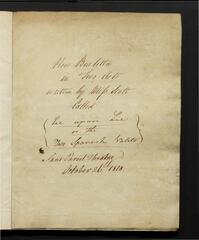 New Burletta
in Two Acts
written by Miss Scott
Called
Lie upon Lie
or the
Two Spanish Valets
Sans Pareil Theatre
October 26th 1818.